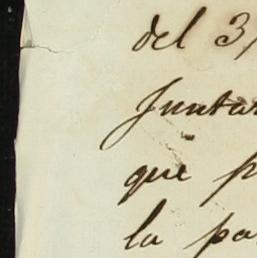 del 3
Junta
que p
la pa